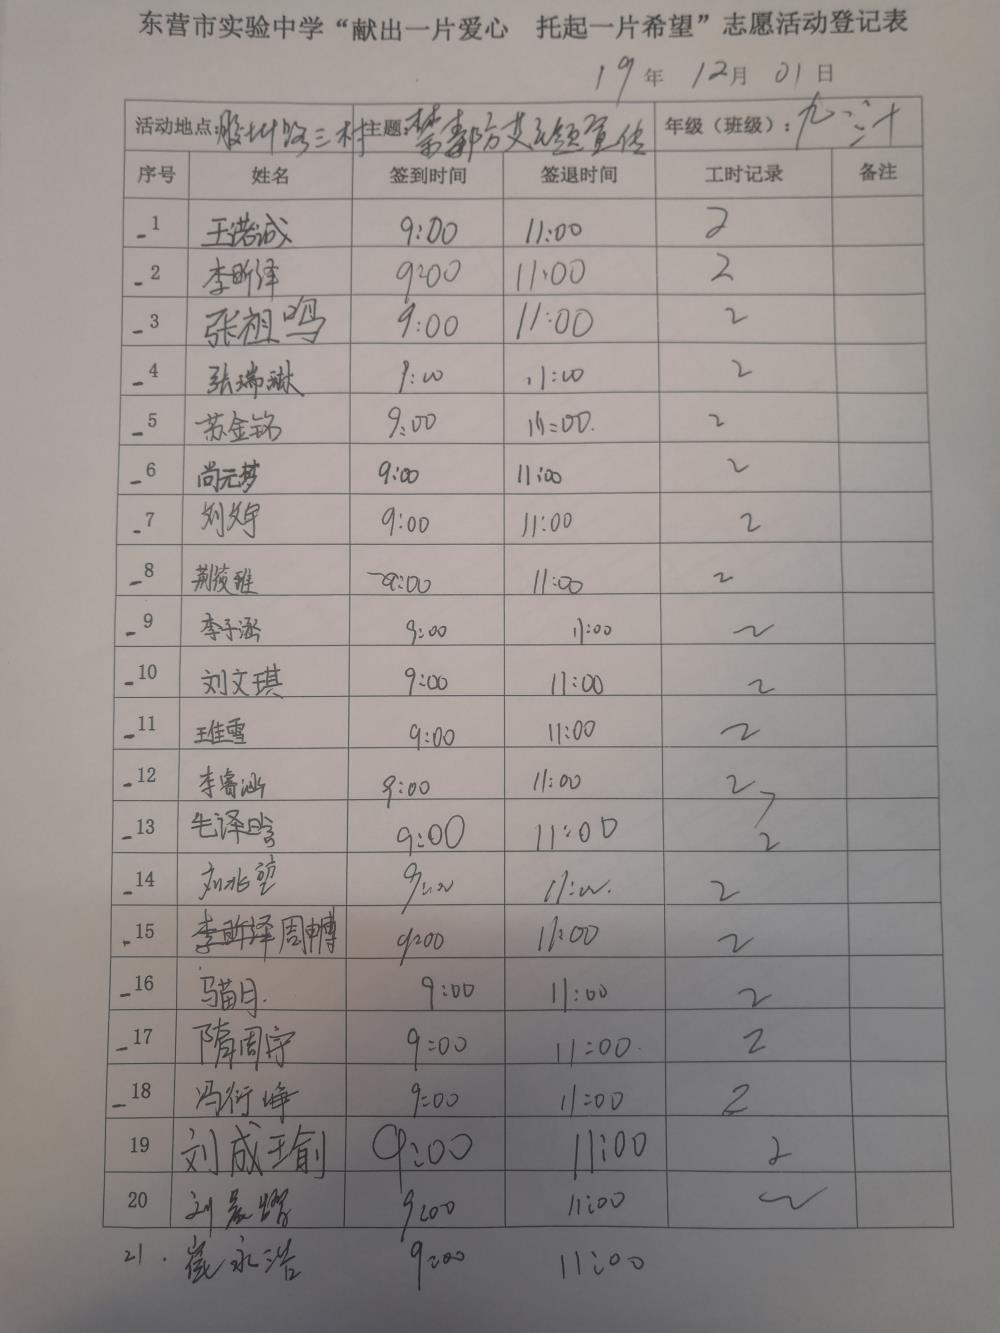 东营市实验中学“献出一片爱心 托起一片希望”志愿活动登记表
19年 12月 01日
活动地点:胶州路三村 主题:禁毒防艾主题宣传 年级(班级):九.三十
序号 姓名 签到时间 签退时间 工时记录 备注
1 王诺诚 9:00 11:00 2
2 李昕泽 9:00 11:00 2
3 张祖鸣 9:00 11:00 2
4 张瑞琳 9:00 11:00 2
5 苏金铭 9:00 11:00. 2
6 尚元梦 9:00 11:00 2
7 刘 9:00 11:00 2
8 荆筱雅 9:00 11:00 2
9 李子涵 9:00 11:00 2
10 刘文琪 9:00 11:00 2
11 王佳雪 9:00 11:00 2
12 李睿涵 9:00 11:00 2
13 毛泽晗 9:00 11:00 2
14 刘兆堃 9:00 11:00. 2
15 李昕泽 周 9:00 11:00 2
16 马苗月. 9:00 11:00 2
17 隋周宇 9:00 11:00. 2
18 冯衍峥 9:00 11:00 2
19 刘成瑜 9:00 11:00 2
20 刘晨曜 9:00 11:00 2
21. 崔永浩 9:00 11:00